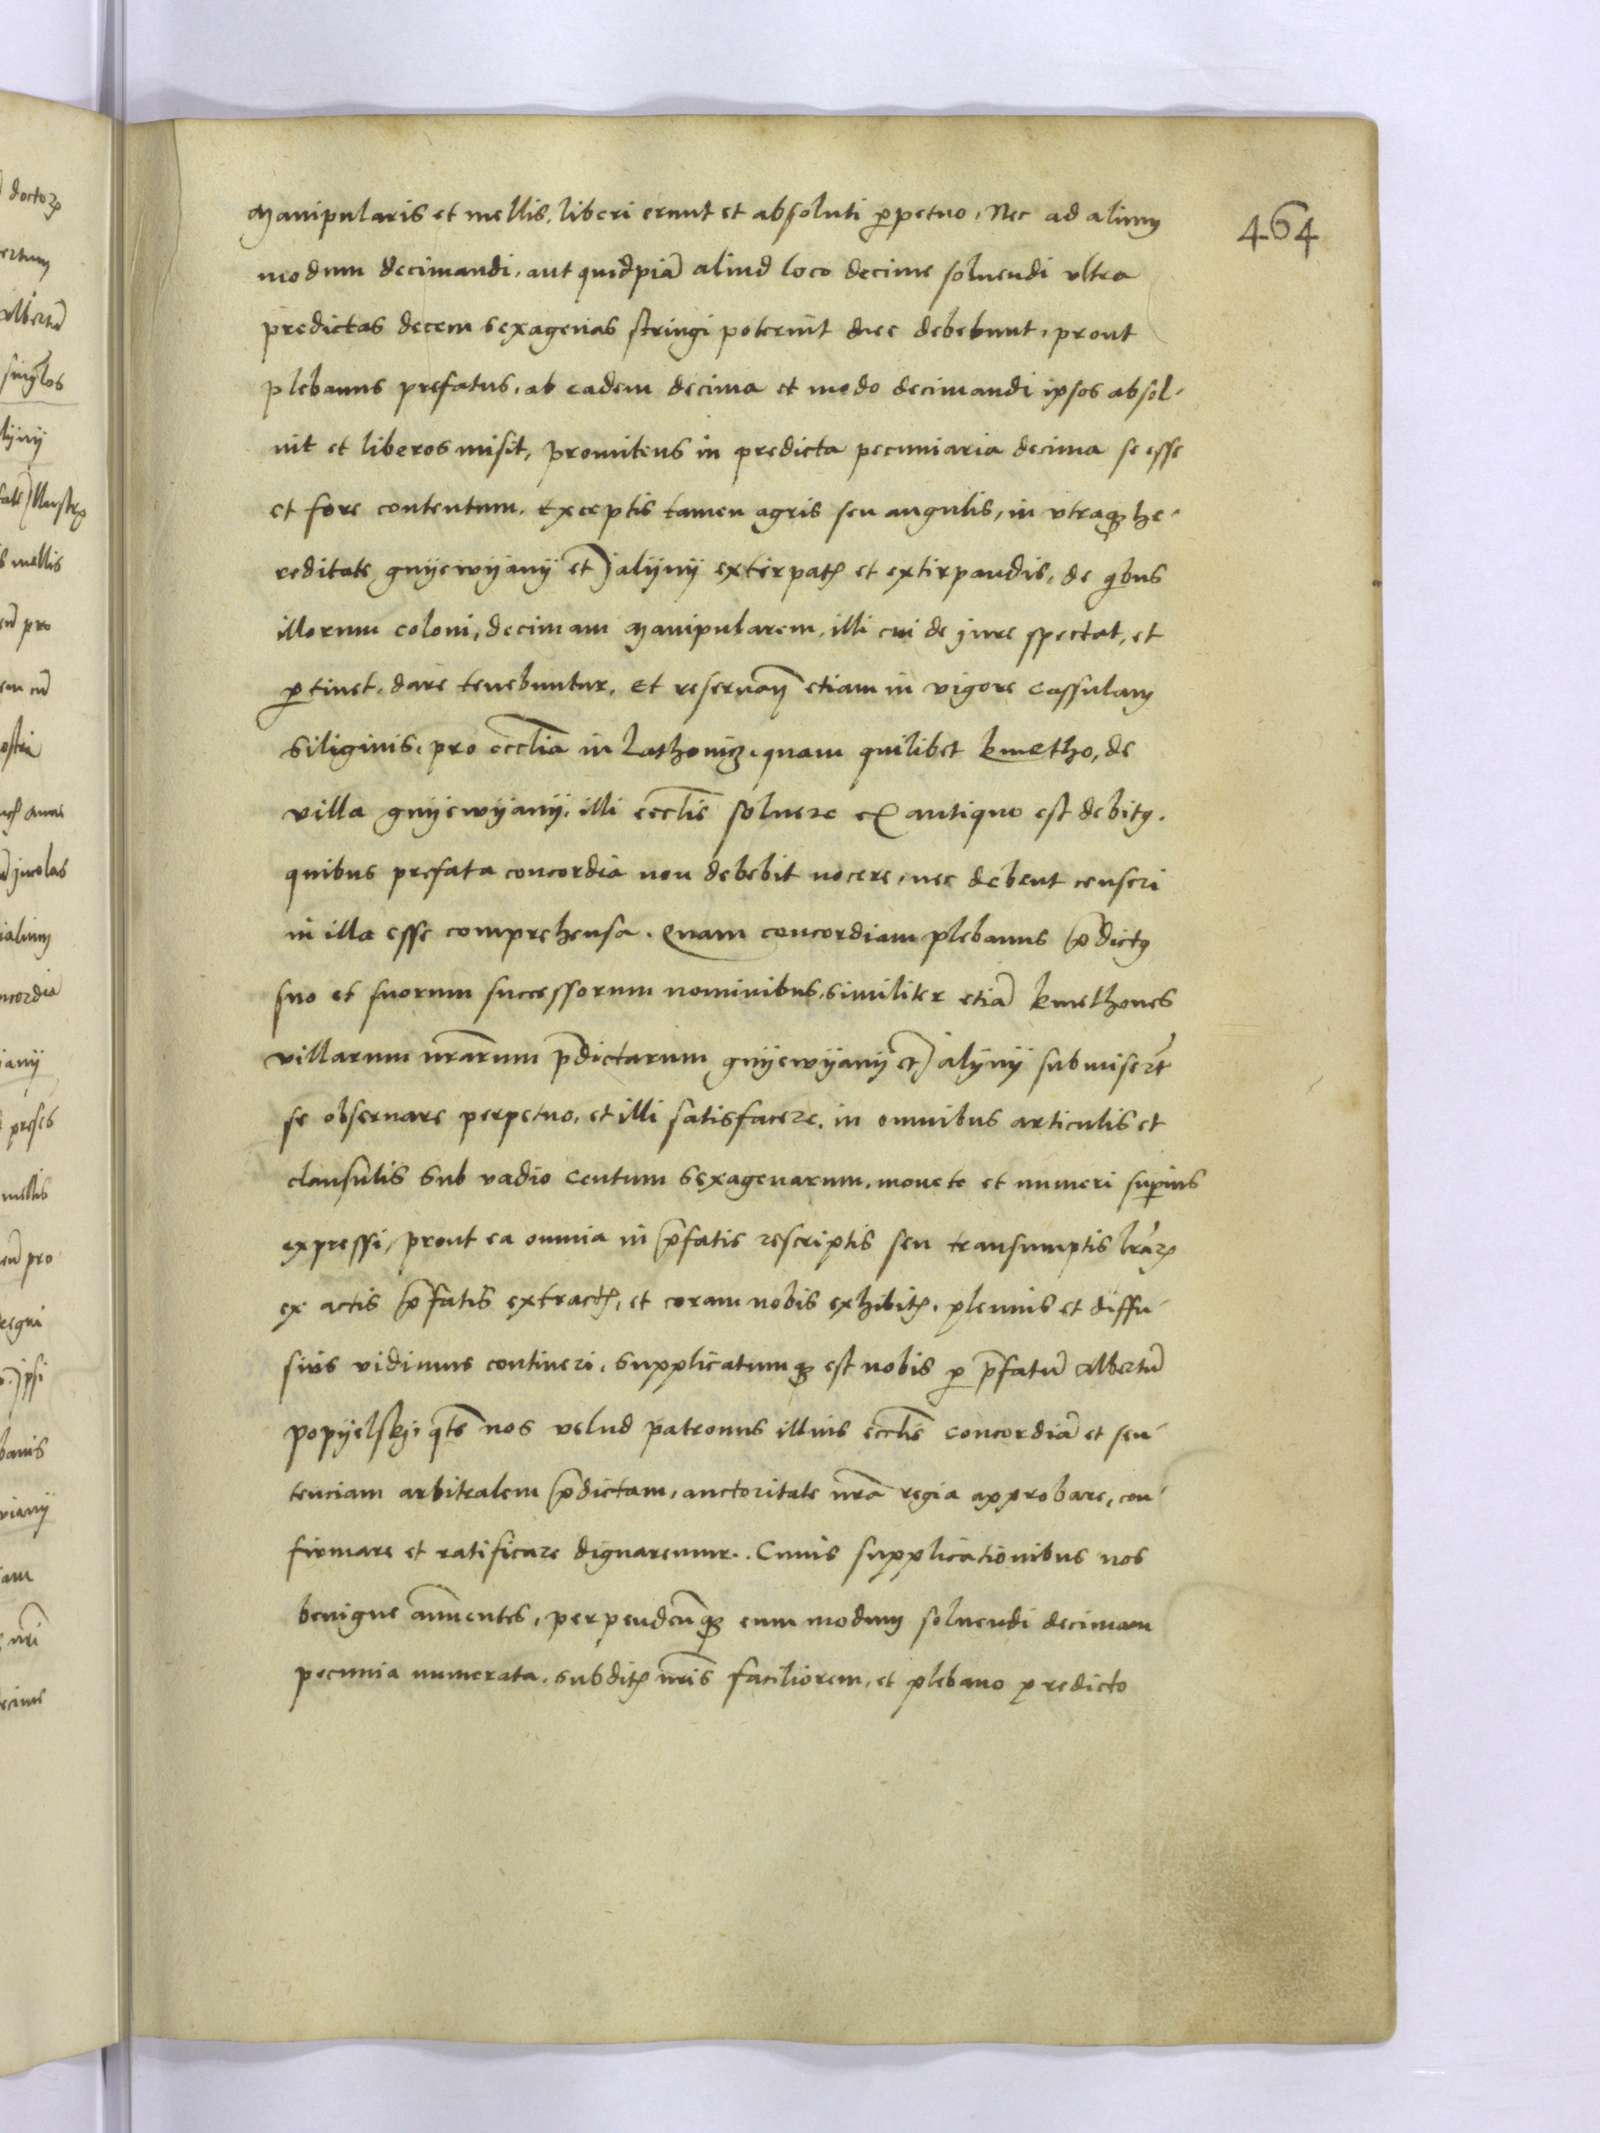 464
Manipularis et mellis, liberi erunt et absoluti ꝑpetuo, Nec ad alium
modum decimandi, aut quidpiã aliud loco decime soluendi vltra
predictas decem sexagenas stringi poterint nec debebunt, prout
plebanus prefatus, ab eadem decima et modo decimandi ipsos absol-
uit et liberos misit, promitens in predicta pecuniaria decima se esse
et fore contentum. Exceptis tamen agris seu angulis, in vtraqꝫ he-
reditate gnÿewÿanÿ et alÿnÿ extirpatꝭ et extirpandis, de qibus
illorum coloni, decimam Manipularem, illi cui de jure spectat, et
ꝑtinet, dare tenebuntur. Et etiam in vigore cassulam
siliginis, pro eccłia in quam quilibet kmetho, de
villa gnÿewÿanÿ, illi eccłie soluere ex antiquo est debitꝰ.
quibus prefata concordia non debebit nocere, nec debent censeri
in illa esse comprehensa. Quam concordiam plebanus p̃dictꝰ
suo et suorum successorum nominibus, similiter etiã kmethones
villarum nr̃arum p̃dictarum gnÿewÿanÿ et alÿnÿ submiser̃t
se obseruare perpetuo, et illi satisfacere, in omnibus articulis et
clausulis sub vadio centum sexagenarum, monete et numeri suꝑius
expressi, prout ea omnia in p̃fatis rescriptis seu transumptis lr̃aꝝ
ex actis p̃fatis extractꝭ, et coram nobis exhibitꝭ, plenius et diffu-
sius vidimus contineri, supplicatumqꝫ est nobis ꝑ p̃fatũ Albertũ
popÿelskj, qtẽ nos velud patronus illius eccłie concordiã et sen-
tenciam arbitralem p̃dictam, auctoritate nr̃a regia approbare, con-
firmare et ratificare dignaremur. Cuius supplicationibus nos
benigne annuentes, perpendeñqꝫ eum modum soluendi decimam
pecunia numerata, subditꝭ nr̃is faciliorem, et plebano predicto